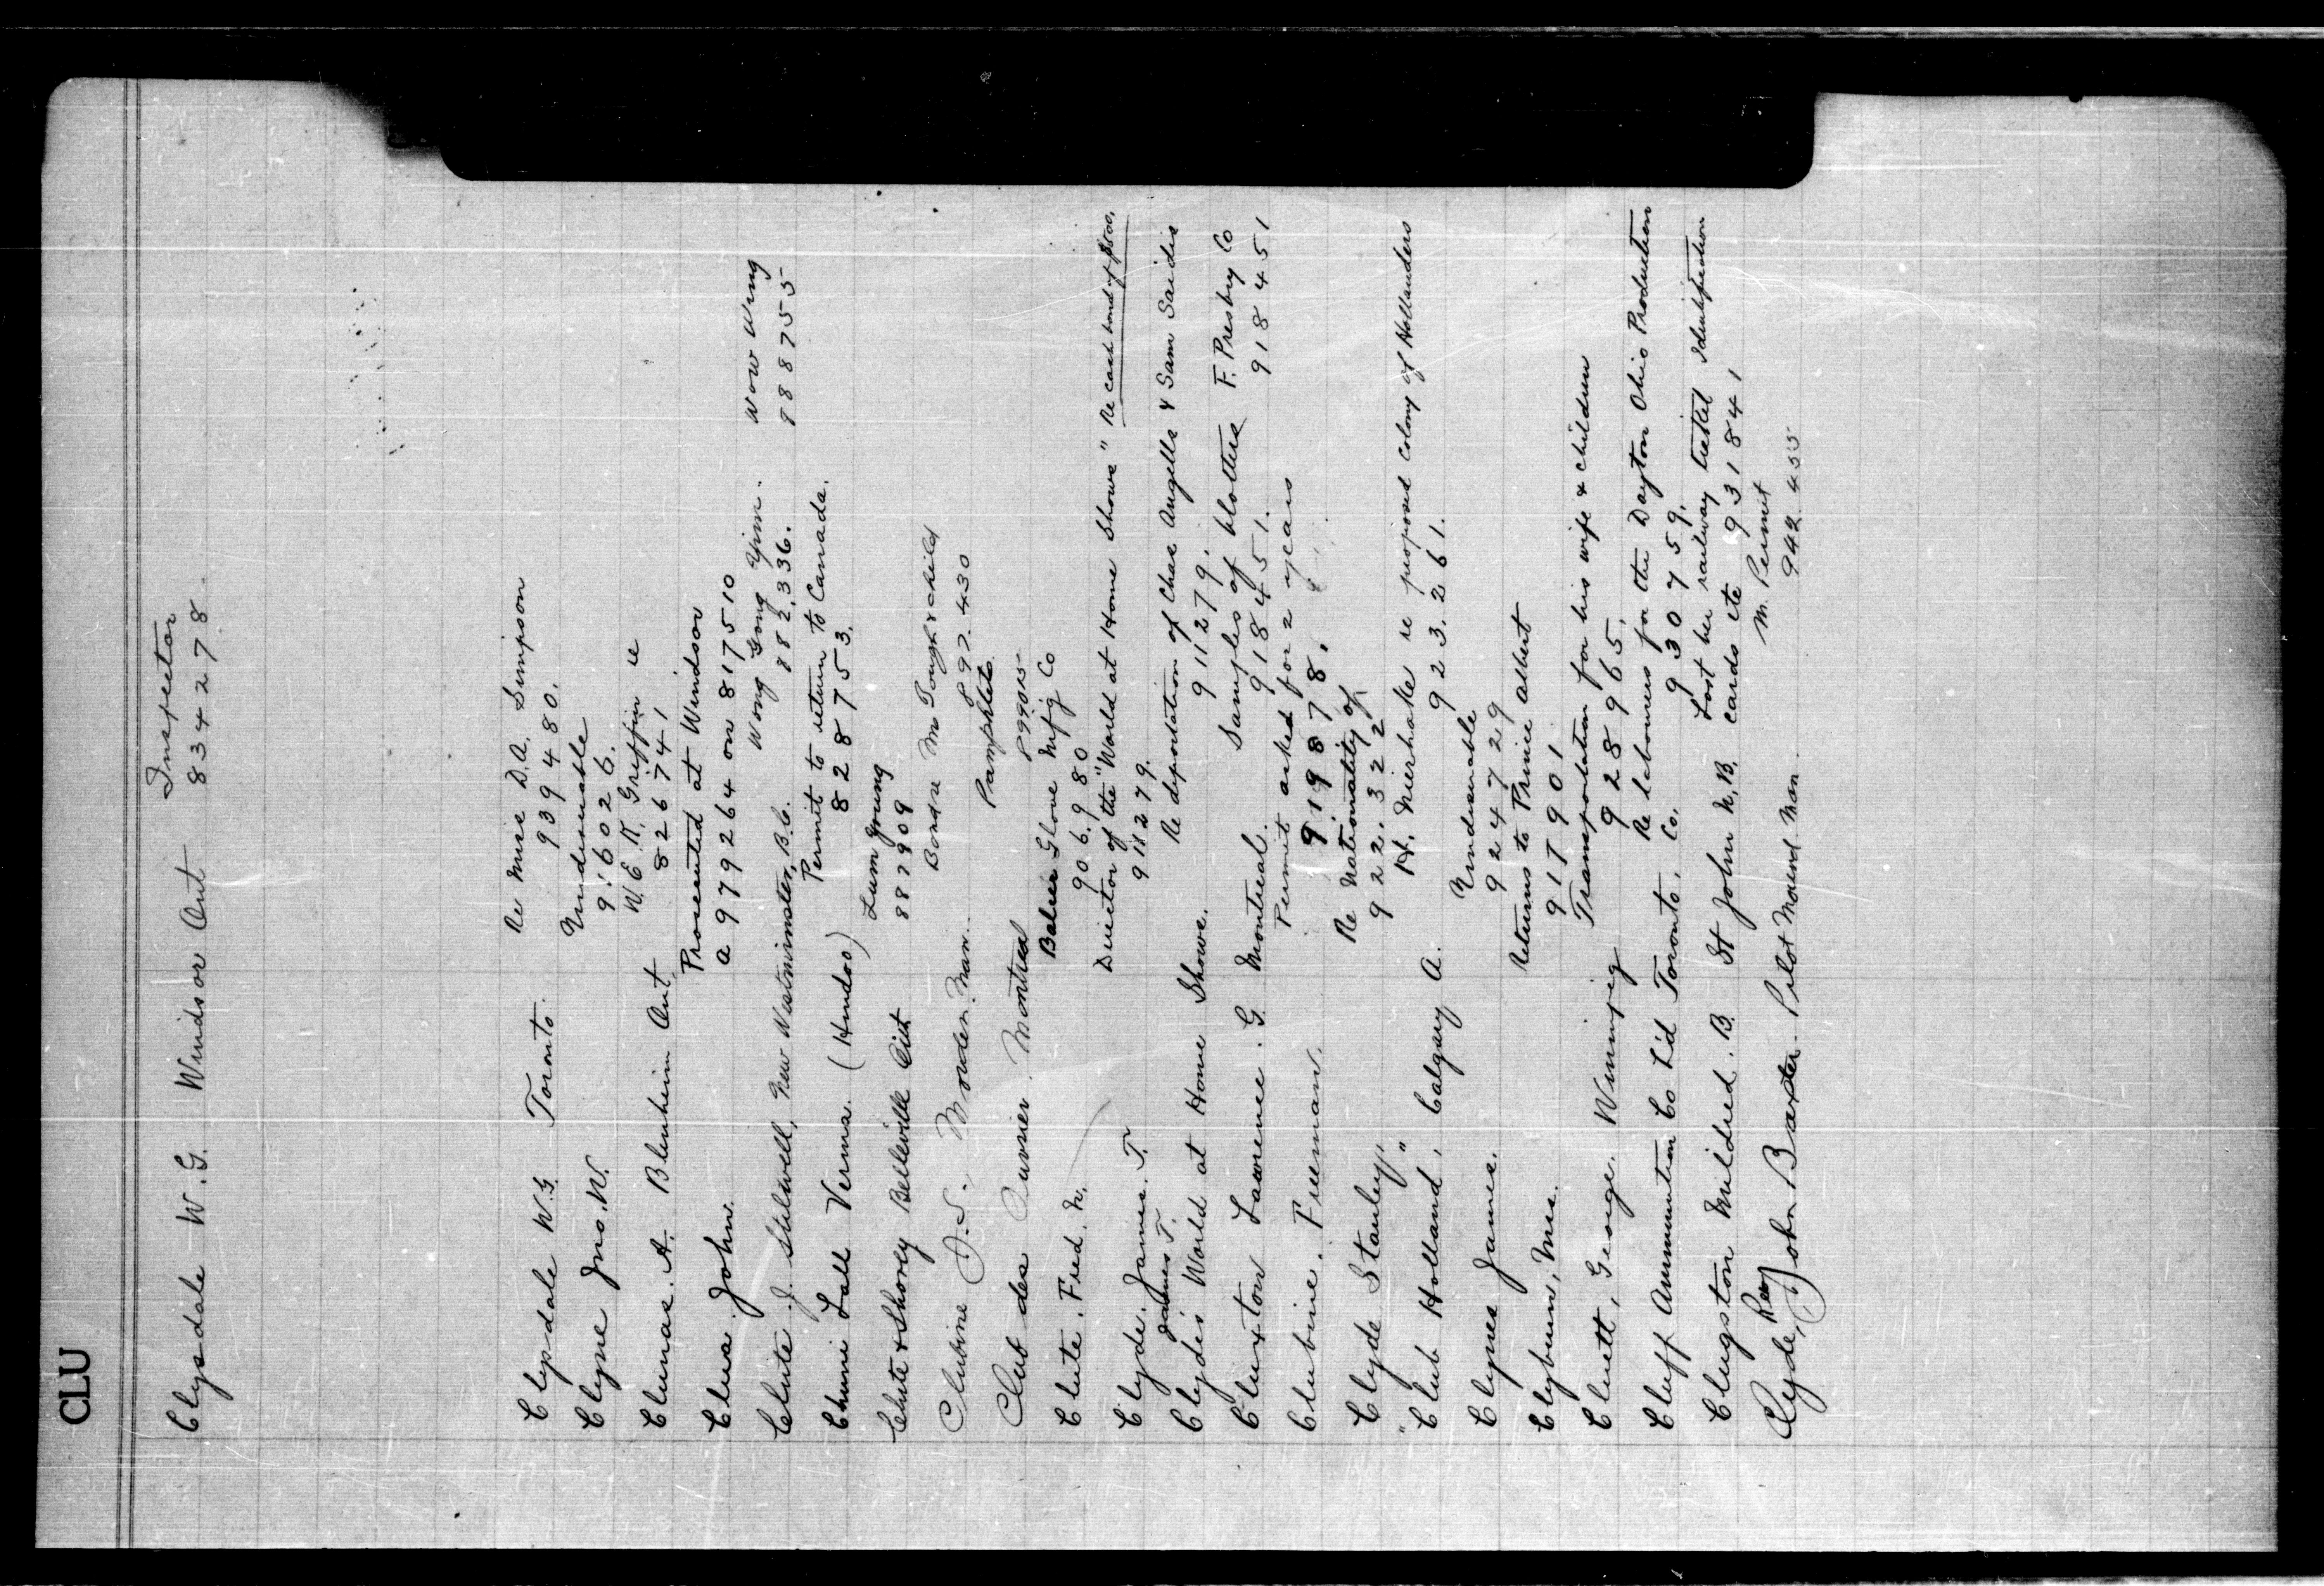 CLU
Clysdale W.G. Windsor Ont Inspector
834278.
Clysdale W.G. Toronto. Re Miss D.A. Simpson
939480.
Clyne Jno. W. Undesirable
916026.
Clunas. A. Blenheim Ont W.E.R. Griffin re
826741
Clua John. Prosecuted at Windsor
a 979264 on 817510
Clute J. Stilwell, New Westminster, B.C. Wong Gong Yim. Wow Wing
882,336. 888755
Chuni Lall Verma. (Hindoo) Permit to return to Canada.
828753.
Clute & Shorey Belleville Ont Lum Young
887909
Clubine J.S. Morden. Man. Bonsra McGough & child
892.430
Club des Ouvrier. Montreal Pamphlets
899015
Clute. Fred. N. Glove Mfg Co
906.980
Clyde. James. T. Director of the "World at Home Shows" Re cash bond of $500.
911279.
James T.
Clyde's World at Home Shows. Re deportation of Chas Angells & Sam Saidis
911279.
Cluxton Lawrence. G. Montreal. Samples of blotters F. Presby Co
918451. 918451
Clubine. Freeman. Permit asked for 2 years
919878.
Clyde Stanley, Re Nationality of
922.322
"Club Holland", Calgary A. H. Nierhake re proposed Colony of Hollanders
923.261.
Clynes James. Undesirable
924729
Clyburn, Mrs. Returns to Prince Albert
917901
Cluett, George. Winnipeg Transportation for his wife & children
928965.
Cluff Ammunition Co L'd Toronto. Re labourers for the Dayton Ohio Production
Co. 930759.
Clugston Mildred. B. St John N.B. Lost her railway ticket Identification
cards etc 931841
Clyde, Rev John Baxter. Pilot Mound Man. M. Permit
942.455